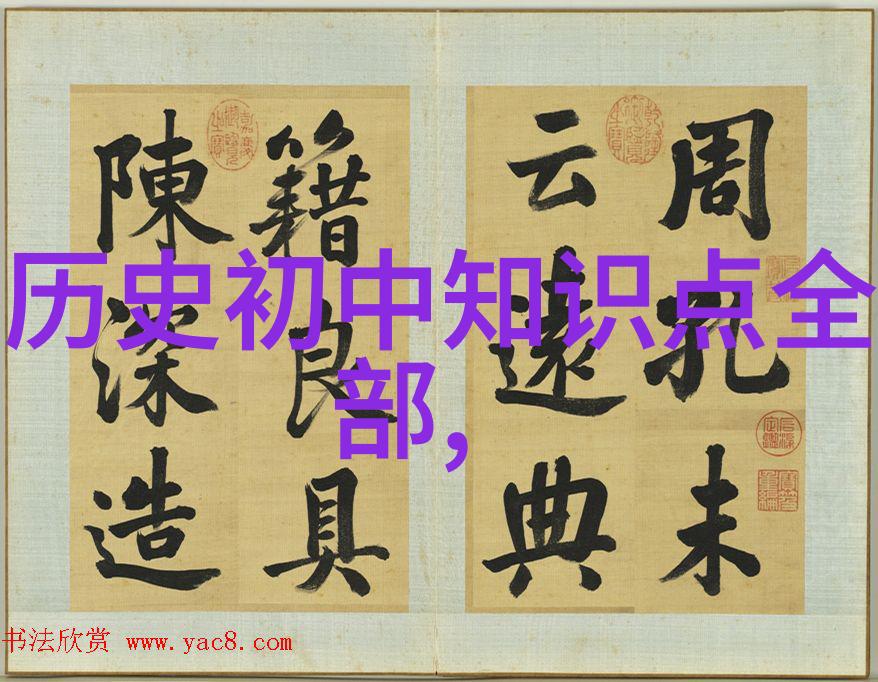 周孔未
云遠典
籍良具
陳深造
历史初中知识点全
部,
书法欣赏 www.yac8.com